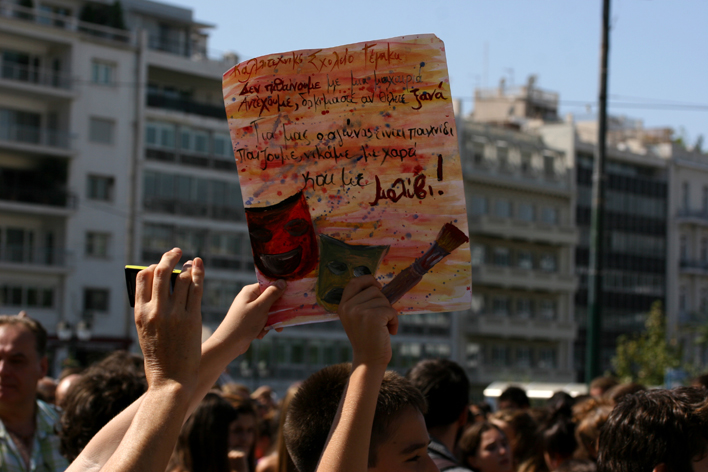 Καλλιτεχνικό Σχολείο Γέρακα
Δεν πεθαίνουμε με μια μαχαιριά
Αντέχουμε, δοκίμασε αν θέμε ξανά
Για μας ο αγώνας είναι παιχνίδι
παίζουμε νικάμε με χαρά
και με μολύβι!